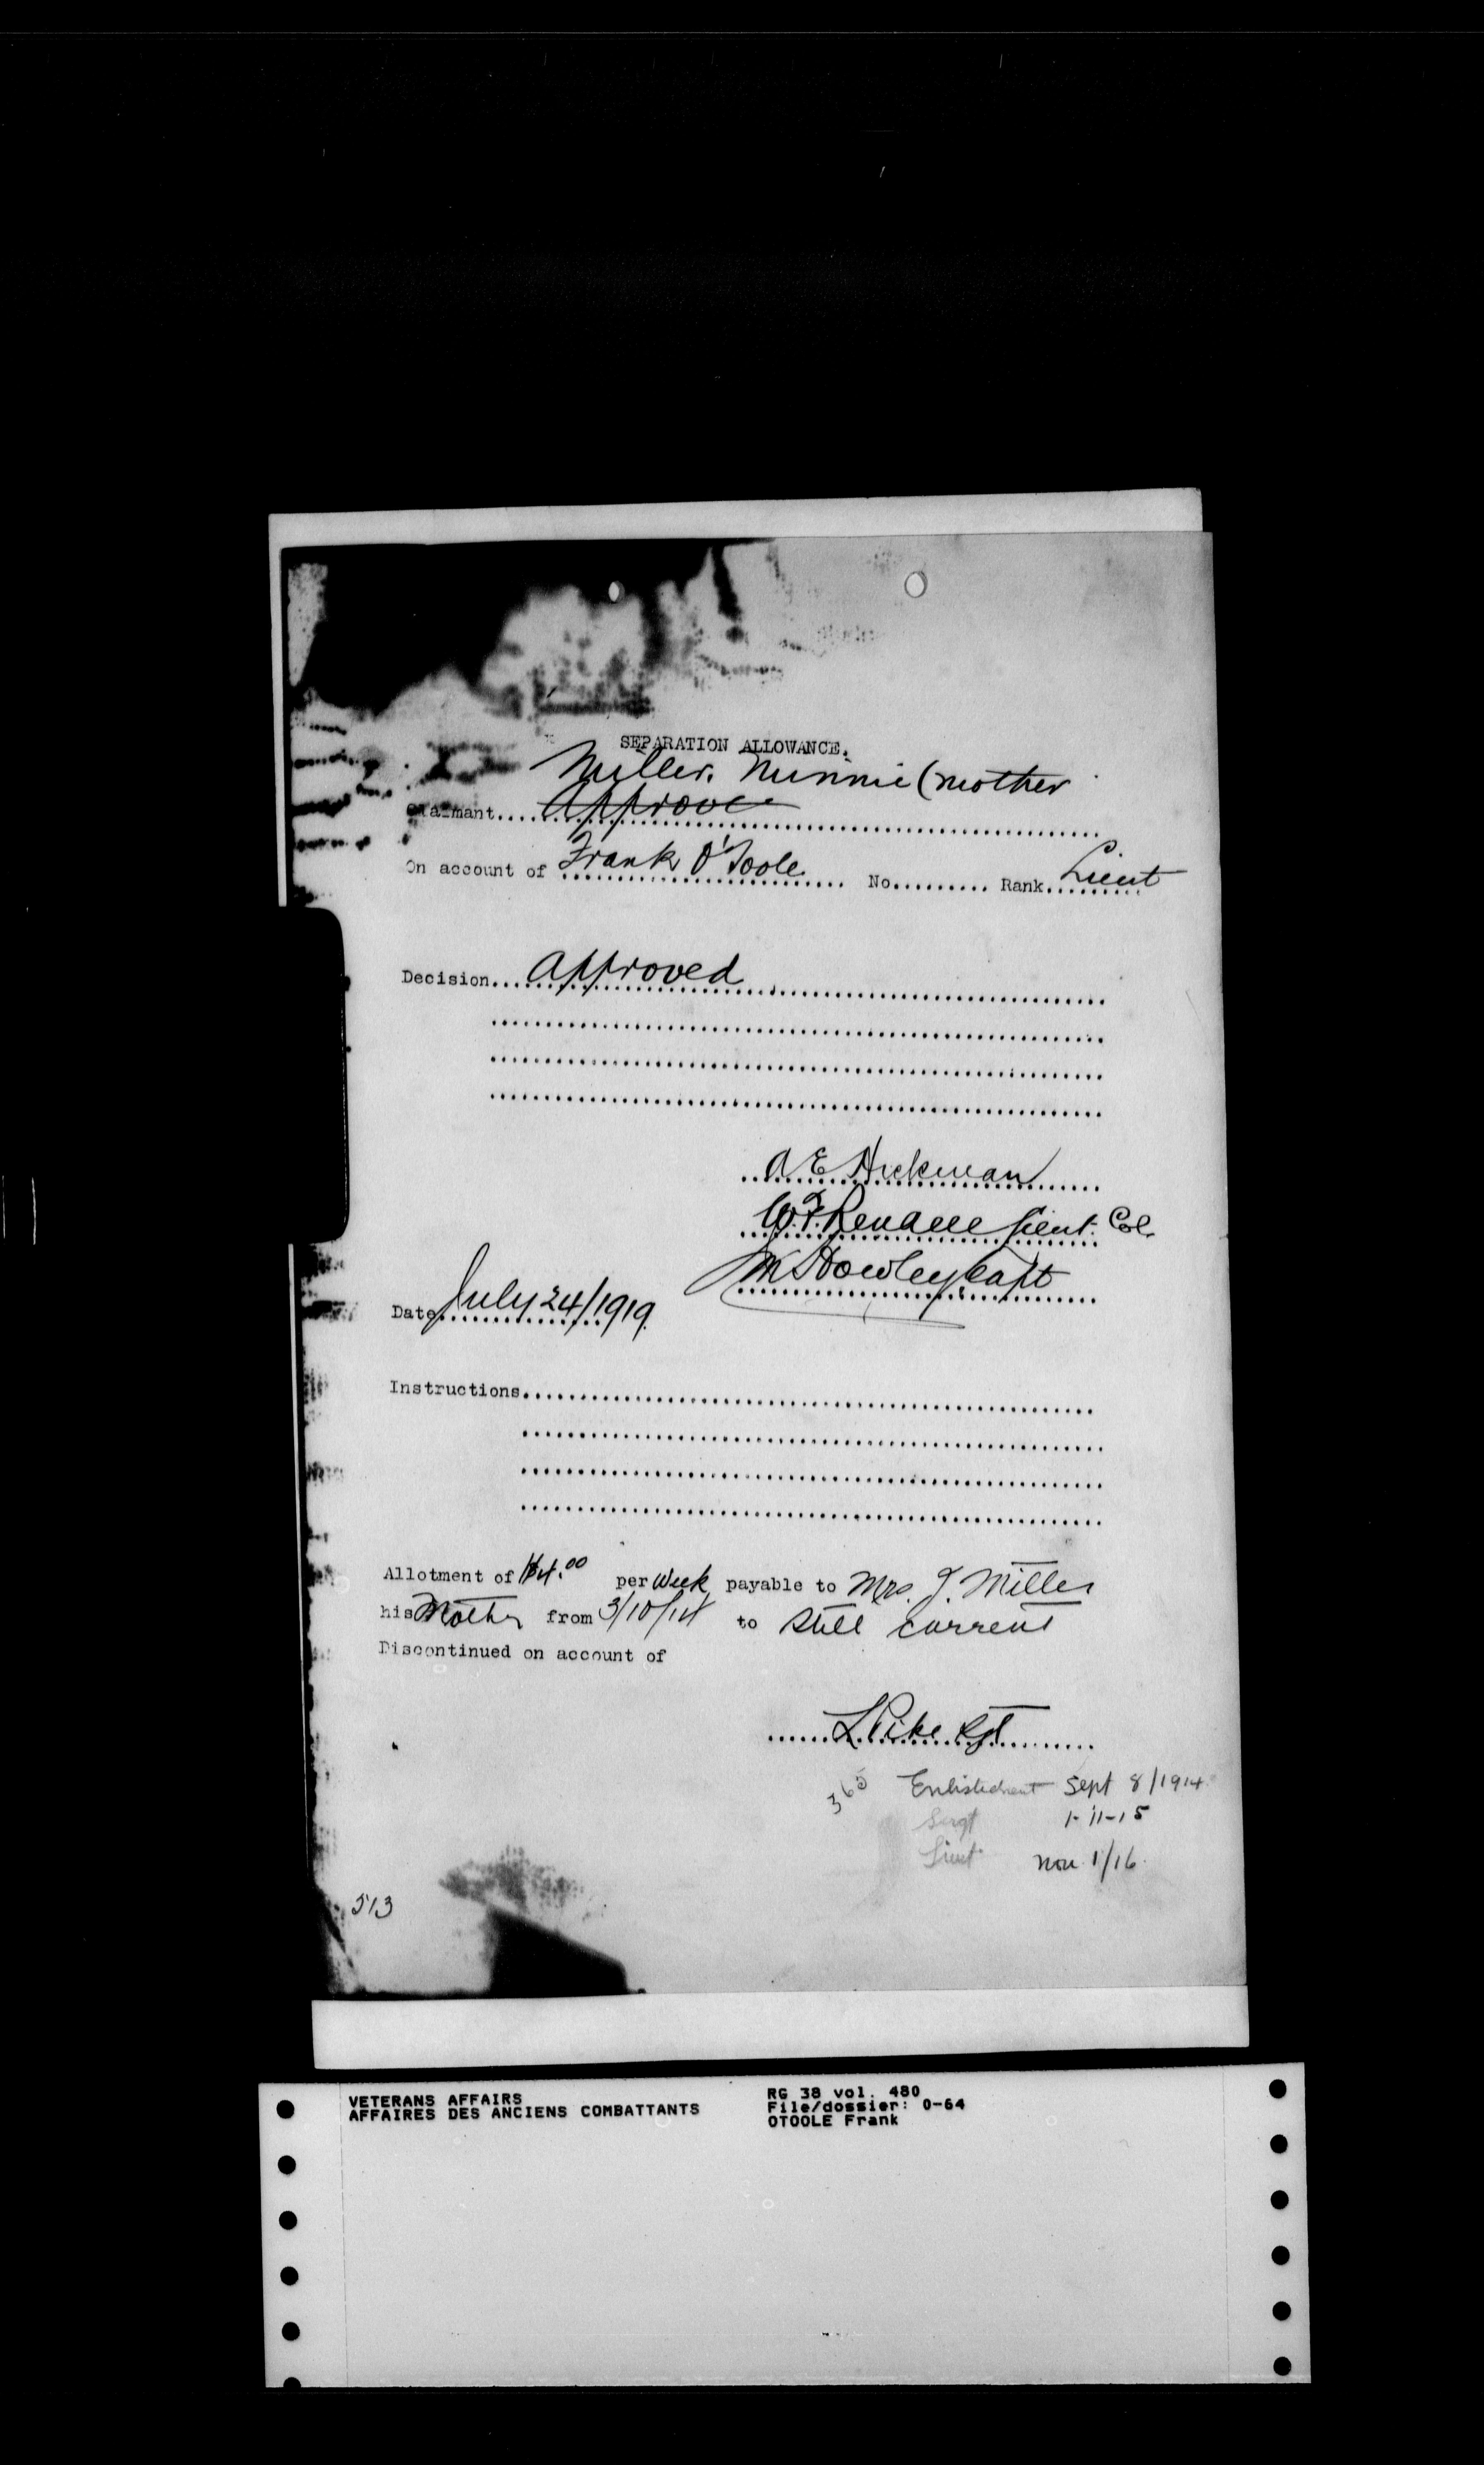 SEPARATION ALLOWANCE.
Miller, Minnie (mother
Claimant.... Approve
On account of Frank O'Toole No.......... Rank Lieut
Decision... Approved
A E Hickman
W.F. Rendell Lieut. Col.
Howley Capt
Date July 24/1919.
Instructions
Allotment of $4.00 per week payable to Mrs. J. Miller
his Mother from 3/10/14 to Still current
Discontinued on account of
L Pike Sgt
365 Enlistedment Sept 8/1914
Sergt 1-11-15
Lieut Nov 1/16
513
VETERANS AFFAIRS
AFFAIRES DES ANCIENS COMBATTANTS
RG 38 vol. 480
File/dossier: O-64
OTOOLE Frank